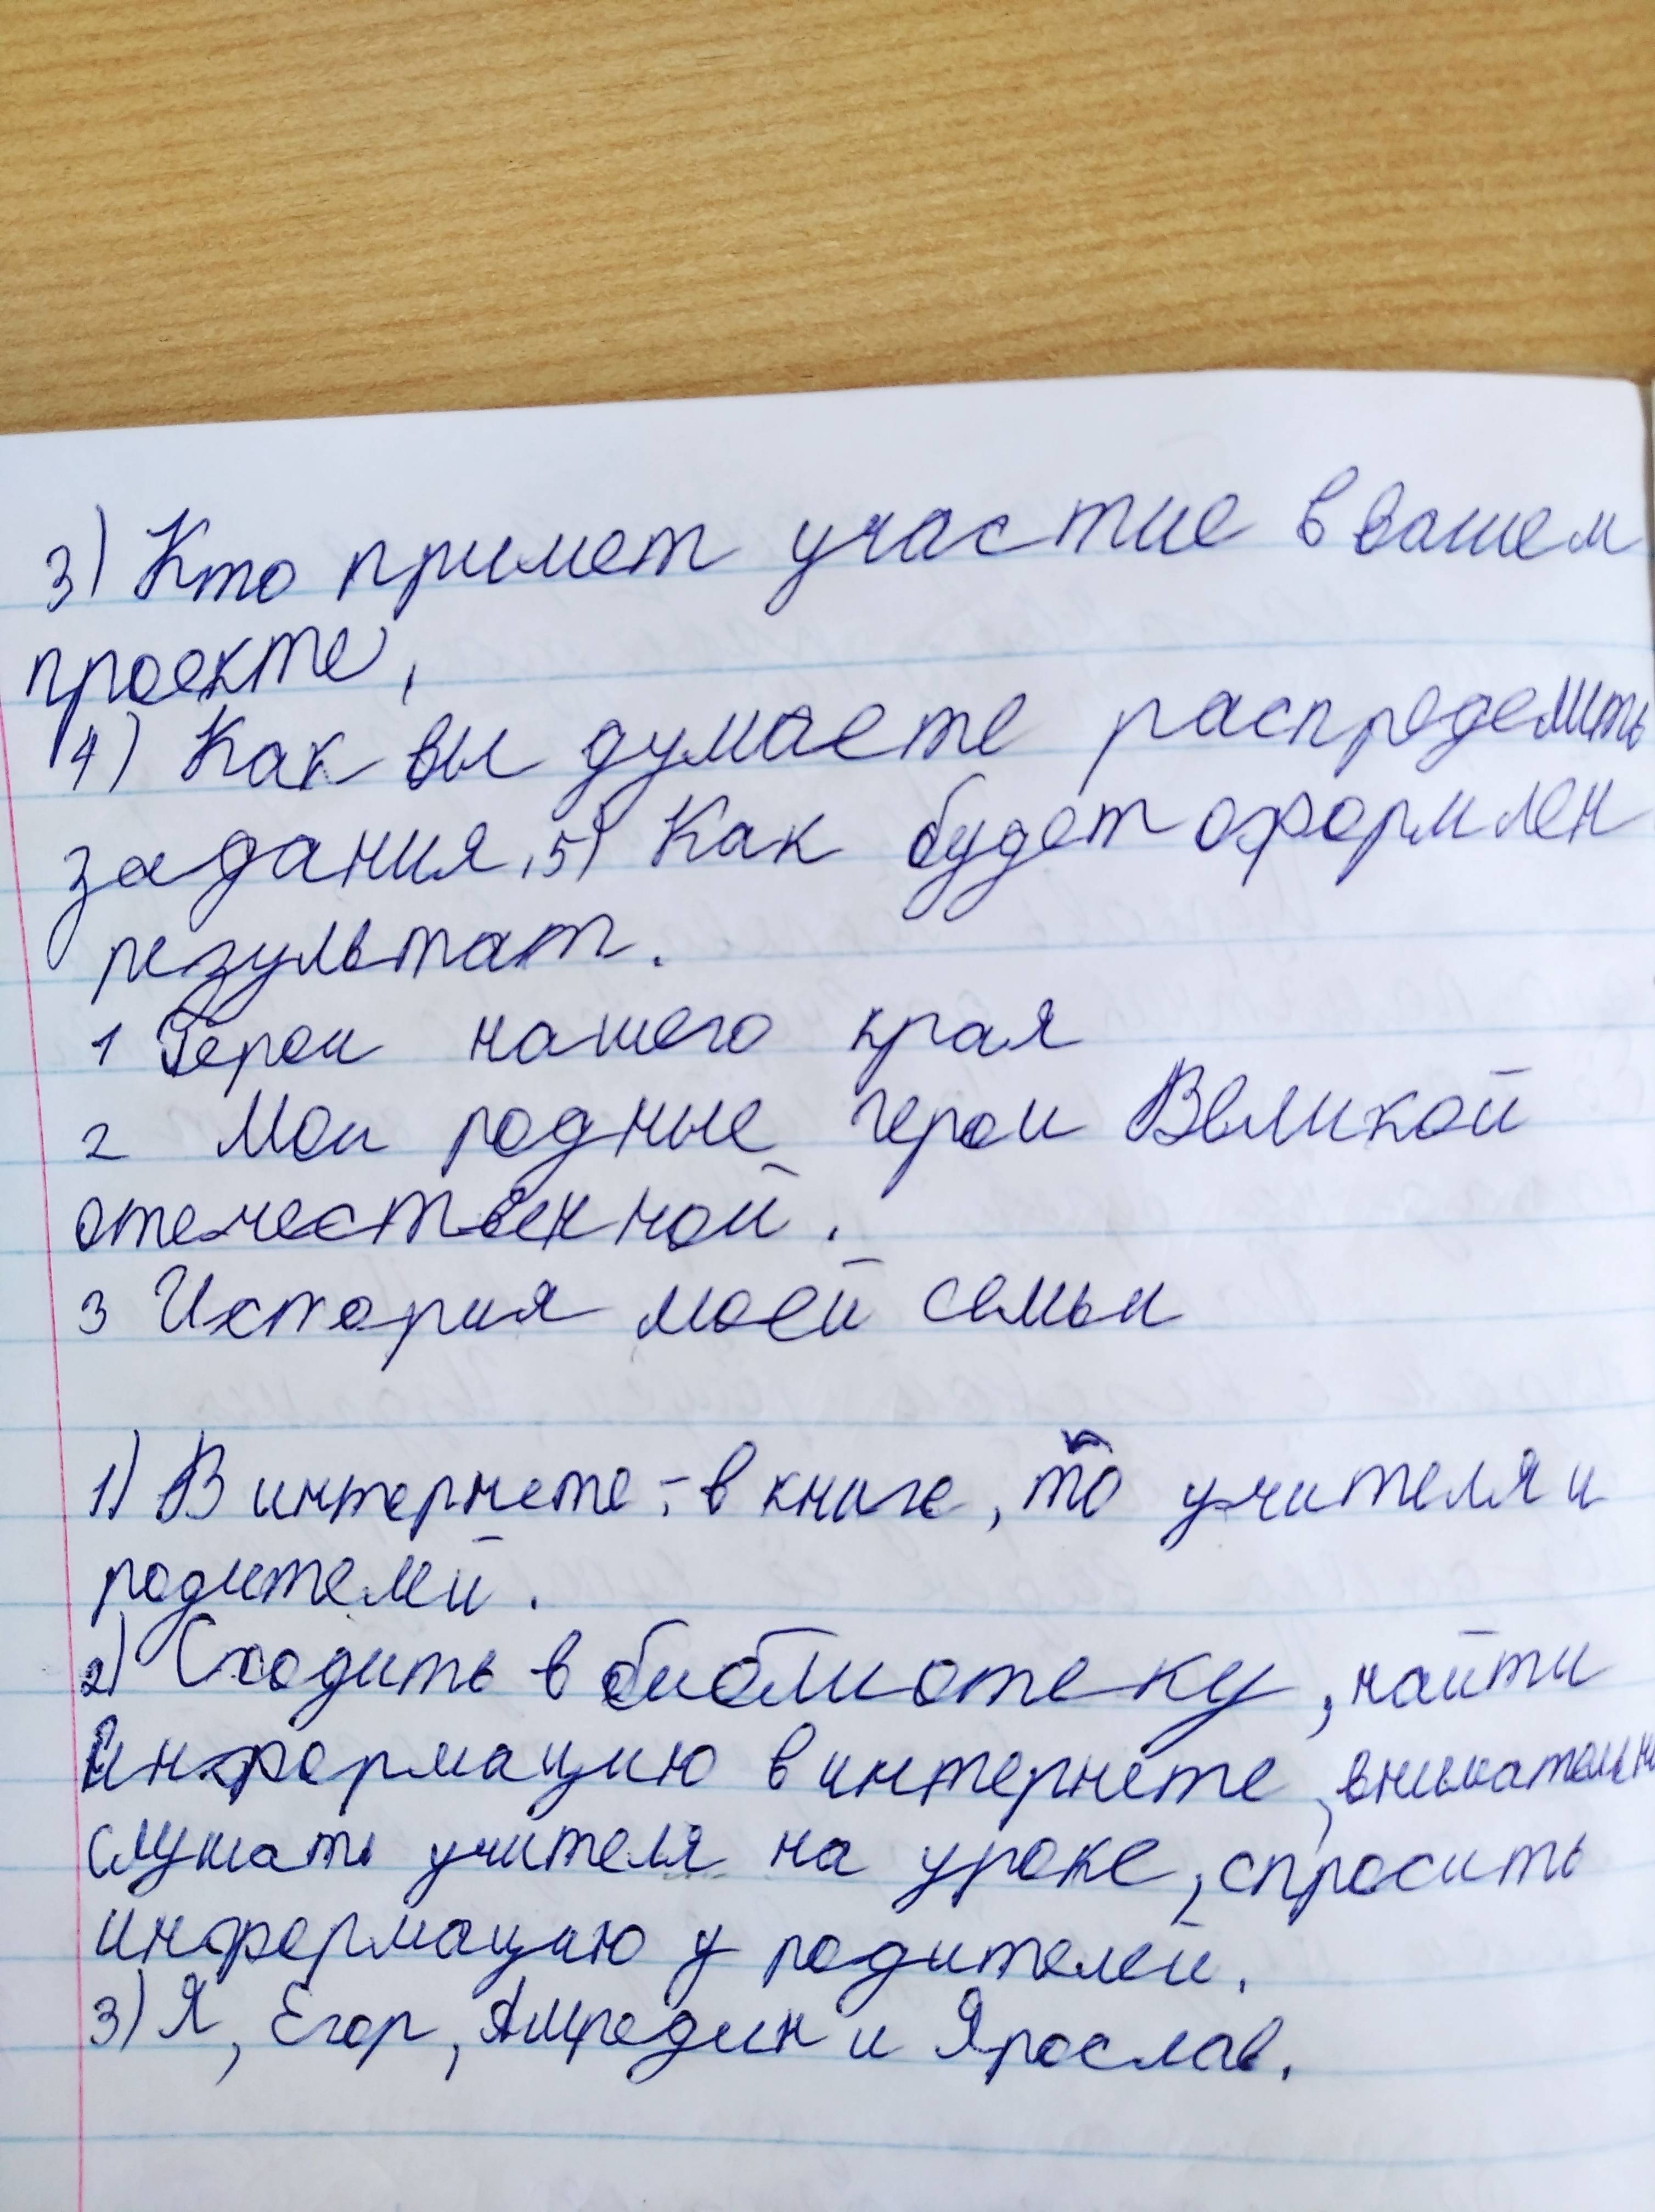 3) Кто примет участие в вашем
проекте,
4) Как вы думаете распределить
задания, 5) Как будет оформлен
результат.
1 Герои нашего края
2 Мои родные герои Великой
отечественной.
3 История моей семьи
1) В интернете, в книге, у учителя и
родителей.
2) Сходить в библиотеку, найти
информацию в интернете, внимательн
слушать учителя на уроке, спросить
информацию у родителей.
3) Я, Егор, и Ярослав.